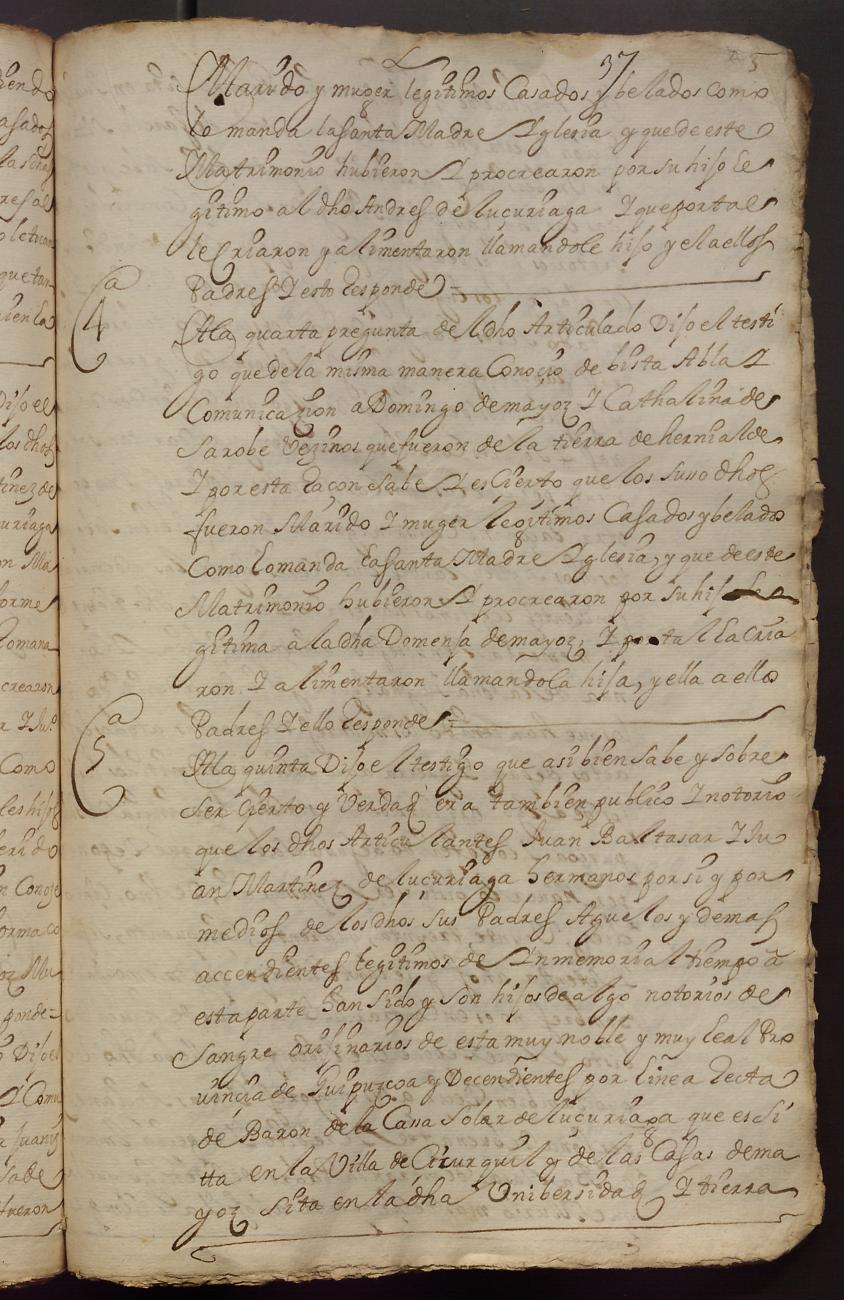 37
Marido y muger legitimos Casados y belados como
lo manda la santa Madre Iglesia y que de este
Matrimonio hubieron I procrearon por su hijo le
gitimo al dho Andres de lucuriaga I que por tal
le Criaron y alimentaron llamandole hijo y el a ellos
Padres I esto Responde
4a
A la quarta pregunta del dho Articulado Dijo el testi
go que de la misma manera Conoçio de bista Abla I
Comunicazion a Domingo de mayoz I Cathalina de
Sarobe Vezinos que fueron de la tierra de hernialde
I por esta Raçon sabe I es Cierto que los suso dhos
fueron Marido I muger legitimos Casados y belados
Como lo manda la santa Madre Iglesia, y que de este
Matrimonio hubieron I procrearon por su hija le
gitima a la dha Domenja de mayoz, I por tal la Cria
ron I alimentaron llamandola hija, y ella a ellos
Padres I ello Responde
5a
A la quinta Dijo el testigo que asi bien sabe y sobre
ser Cierto y Verdad era tambien publico I notorio
que los dhos Articulantes Juan Baltasar I Ju
an Martinez de lucuriaga hermanos por si y por
medios de los dhos sus Padres Aguelos y demas
accendientes legitimos de Inmemorial tiempo a
esta parte han sido y son hijos de algo notorios de
Sangre orijinarios de esta muy noble y muy leal Pro
uincia de Guipuzcoa y Decendientes por linea Recta
de Baron de la Cassa Solar de lucuriaga que es si
tta en la Villa de Cicurquil y de las Casas de ma
yoz sita en la dha Unibersidad I tierra